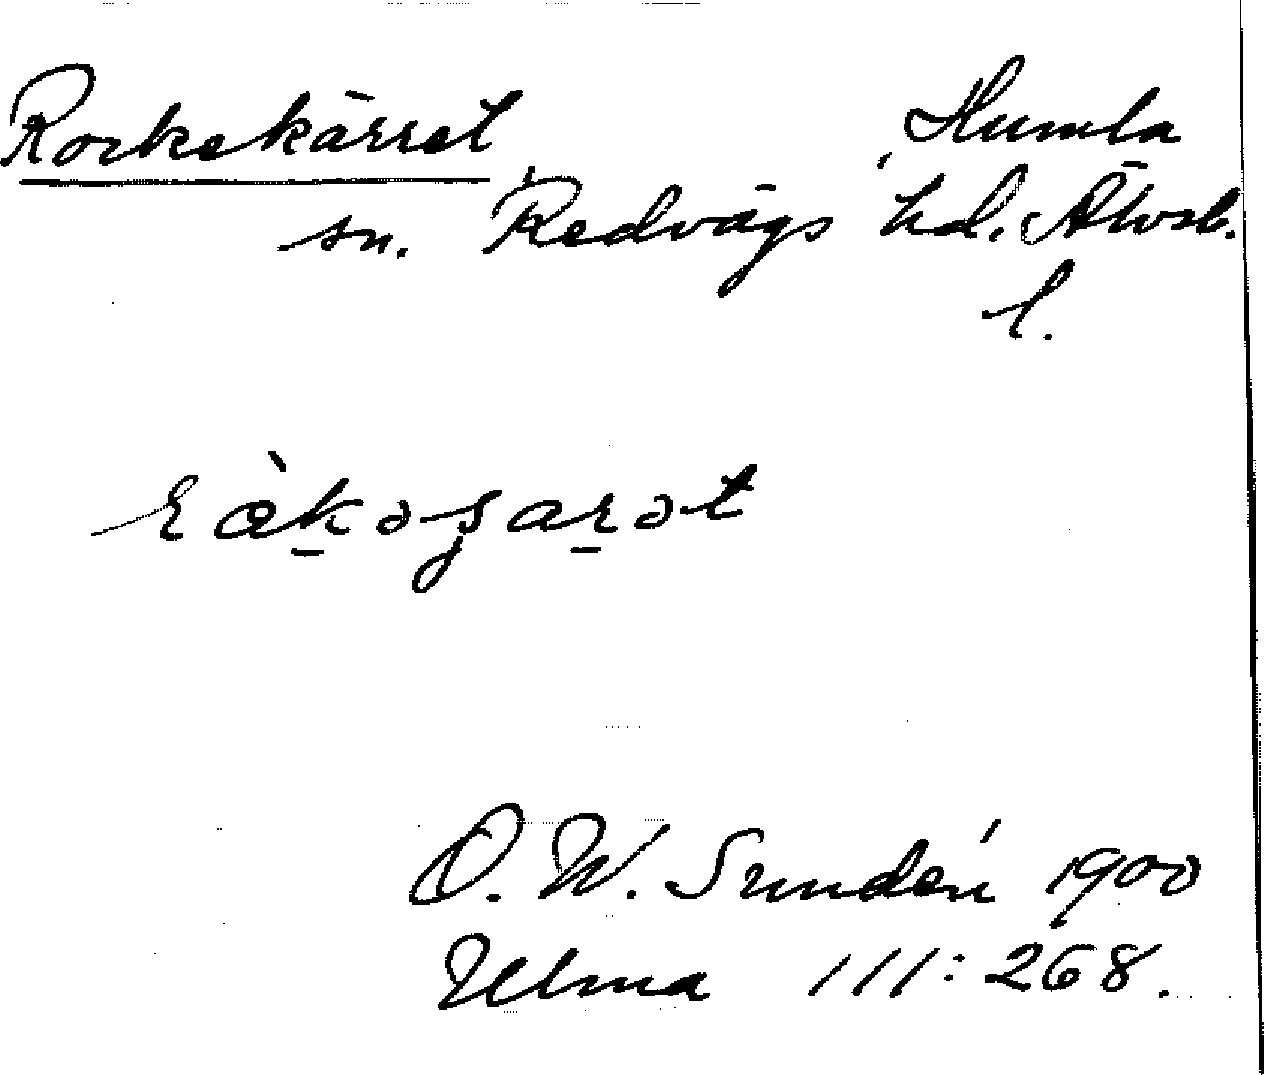 Rockekärret Humla
sn. Redvägs hd. Älvsb.
l.
O. W. Sundén 1900
Ulma 111:268.